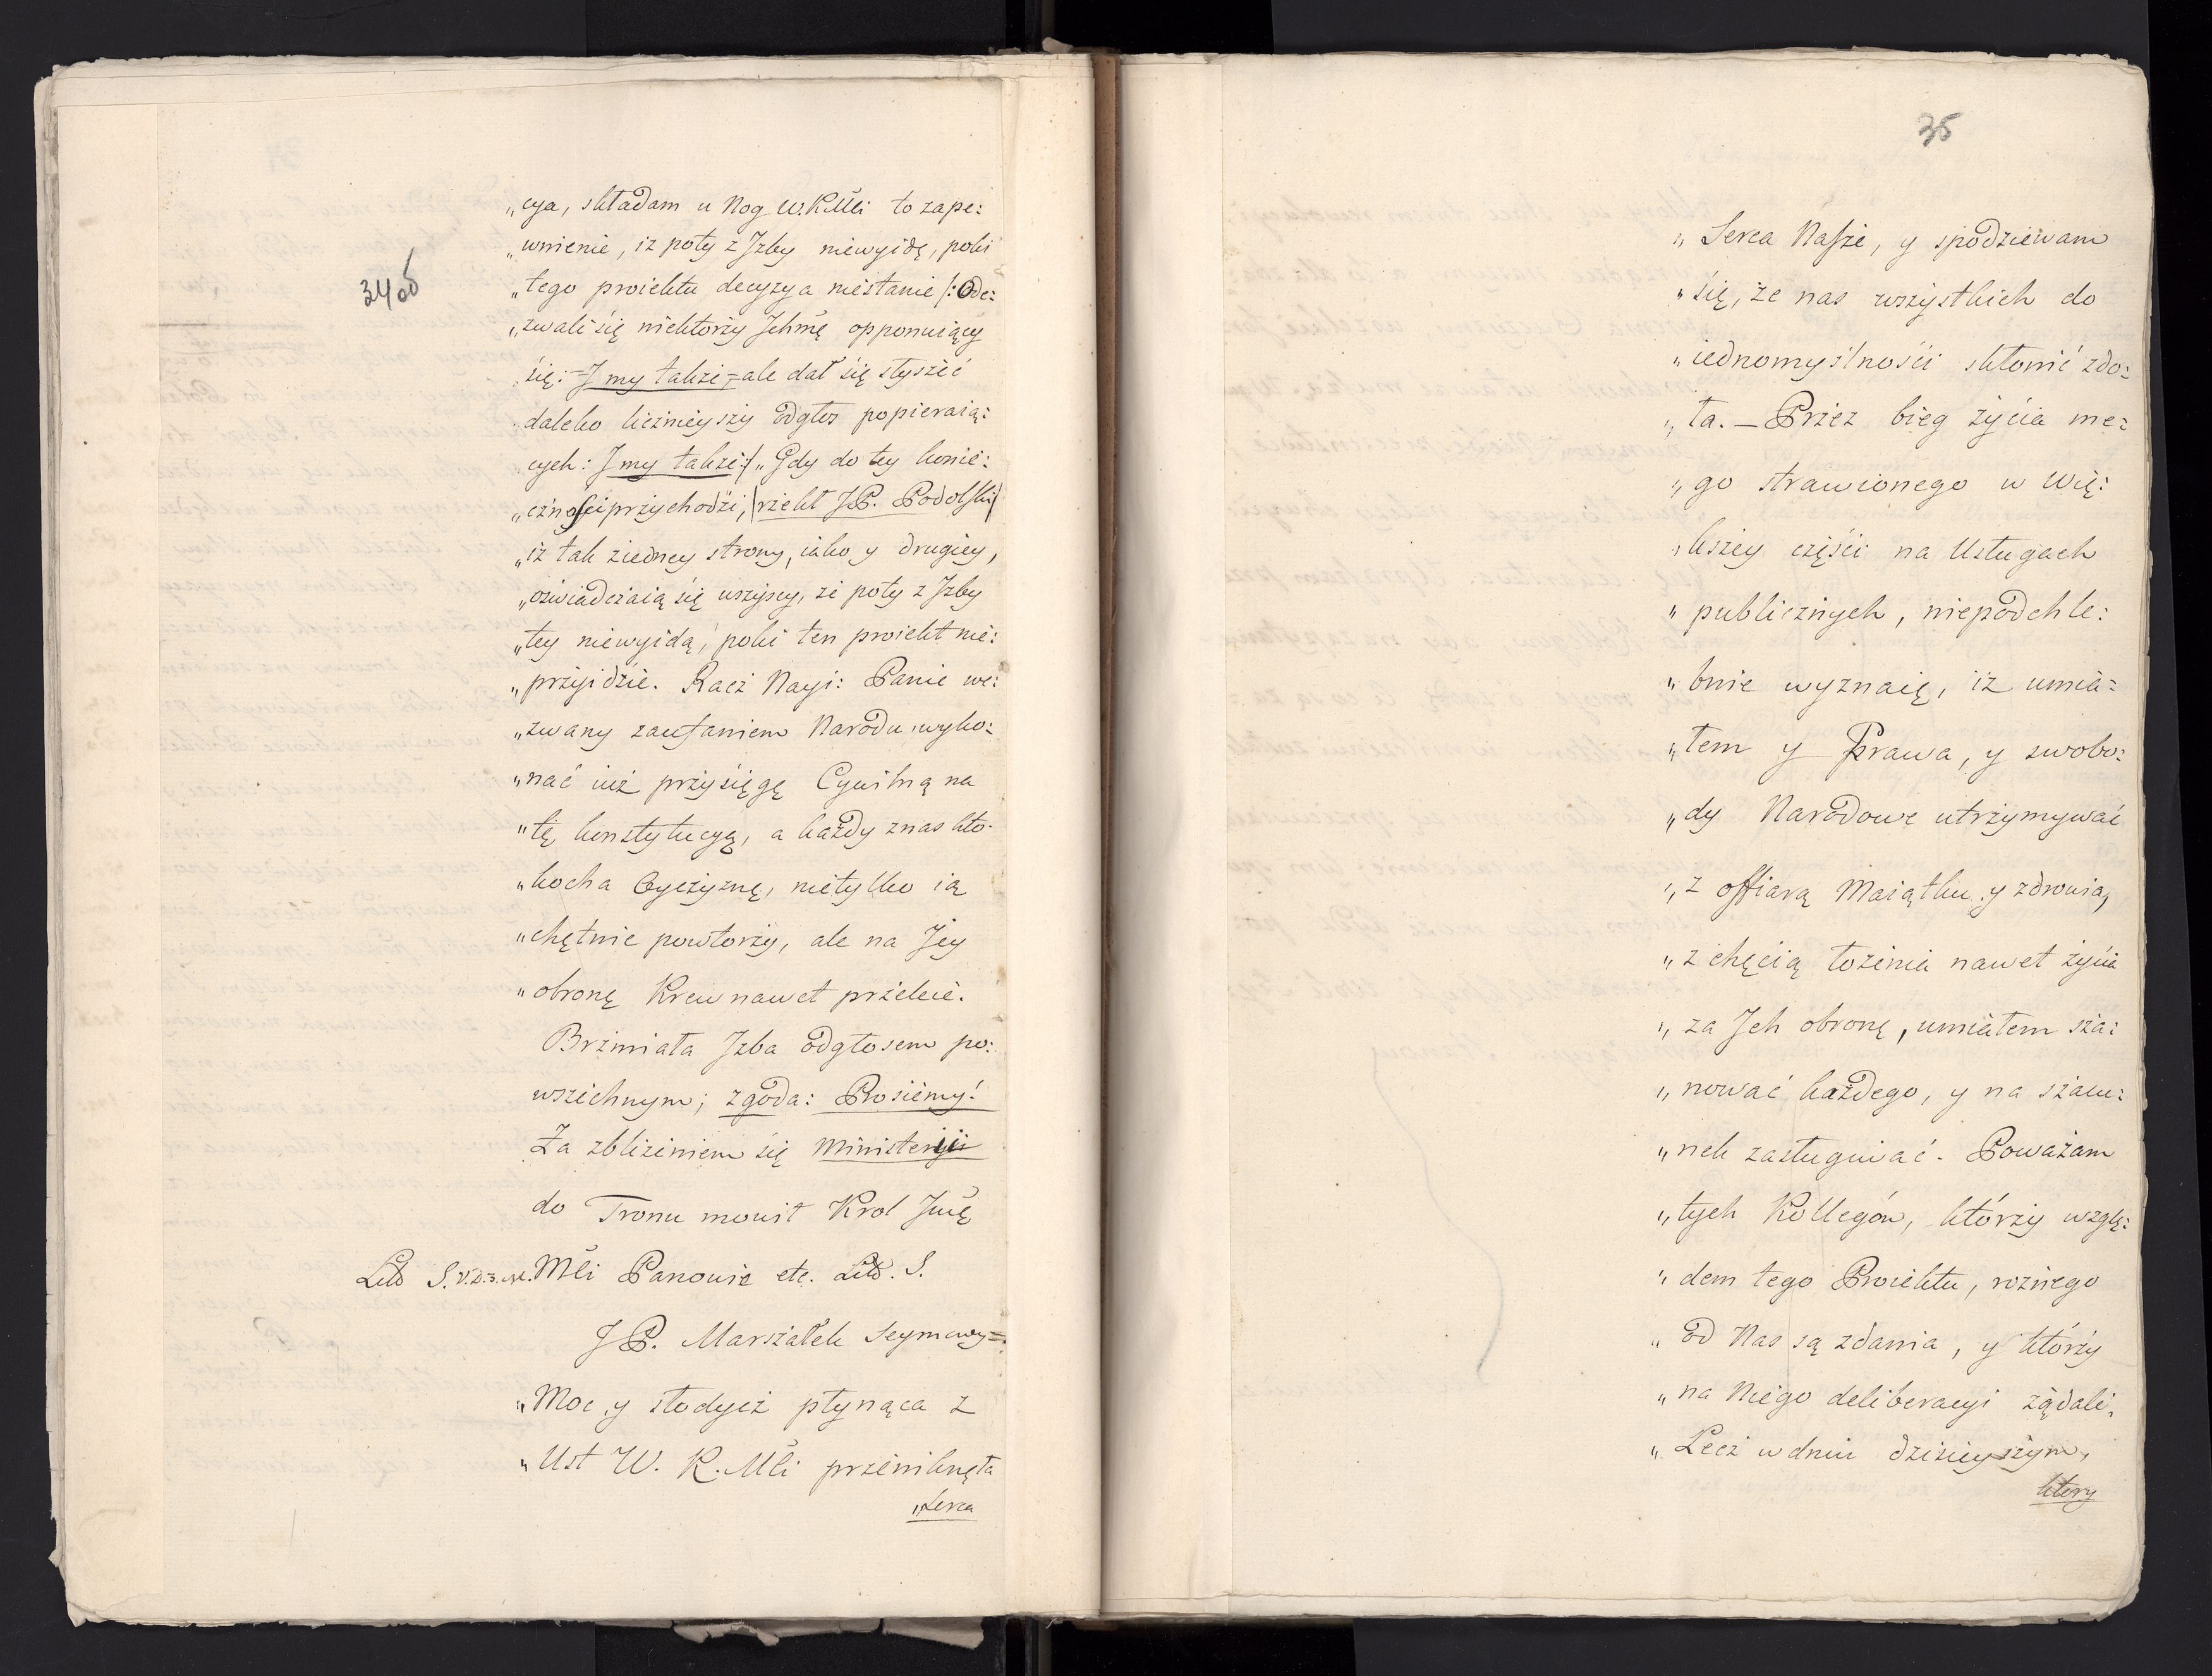 „cya, składam u Nog W.K.Mći to zape:
„wnienie, iż poty z Jzby niewyidę, poki
34 ob
„tego proiektu decyzya niestanie /: Ode:
„zwali się niektorzy Jchmę opponuiący
się: = J my także, = ale dał się słyszeć
daleko liczniejszy odgłos popieraią:
cych: J my także :/ „Gdy do tey konie:
„cznosci przychodzi, /rzekł JP. Podolski/
„iż tak ziedney strony, iako y drugiey,
„oswiadczaią się wszyscy, że poty z Jzby
„tey niewyidą, poki ten proiekt nie:
„przyidzie. Racz Nayi: Panie we:
„zwany zaufaniem Narodu, wyko:
„nać iuż przysięgę Cywilną na
„tę konstytucyą, a każdy znas kto
„kocha Oyczyznę, nietylko ią
„chętnie powtorzy, ale na Jey
„obronę Krew nawet przeleie.
Brzmiała Jzba odgłosem po:
wszechnym; zgoda: Prosiemy!
Za zbliżeniem się Ministeryi
do Tronu mowił Krol Jmę
Litt S. V. D. 3. Mći Panowie etc. Litt. S.
JP. Marszałek Seymowy =
„Moc y słodycz płynąca z
„Ust W. K. Mći przeniknęła
„Serca
35
„Serca Nasze, y spodziewam
„się, że nas wszystkich do
„iednomyślności skłonić zdo:
„ła. — Przez bieg życia me:
„go strawionego w Wię:
„kszey części na Usługach
„publicznych, niepodchle:
„bnie wyznaię, iż umia:
„łem y Prawa, y swobo:
„dy Narodowe utrzymywać
„z offiarą Maiątku y zdrowia,
„z chęcią łożenia nawet życia
„za Jch obronę, umiałem sza:
„nować każdego, y na szacu:
„nek zasługiwać. Poważam
„tych Kollegów, którzy wzglę:
„dem tego Proiektu, rożnego
„od Nas są zdania, y którzy
„na Niego deliberacyi żądali,
„Lecz w dniu dzisieyszym,
ktory